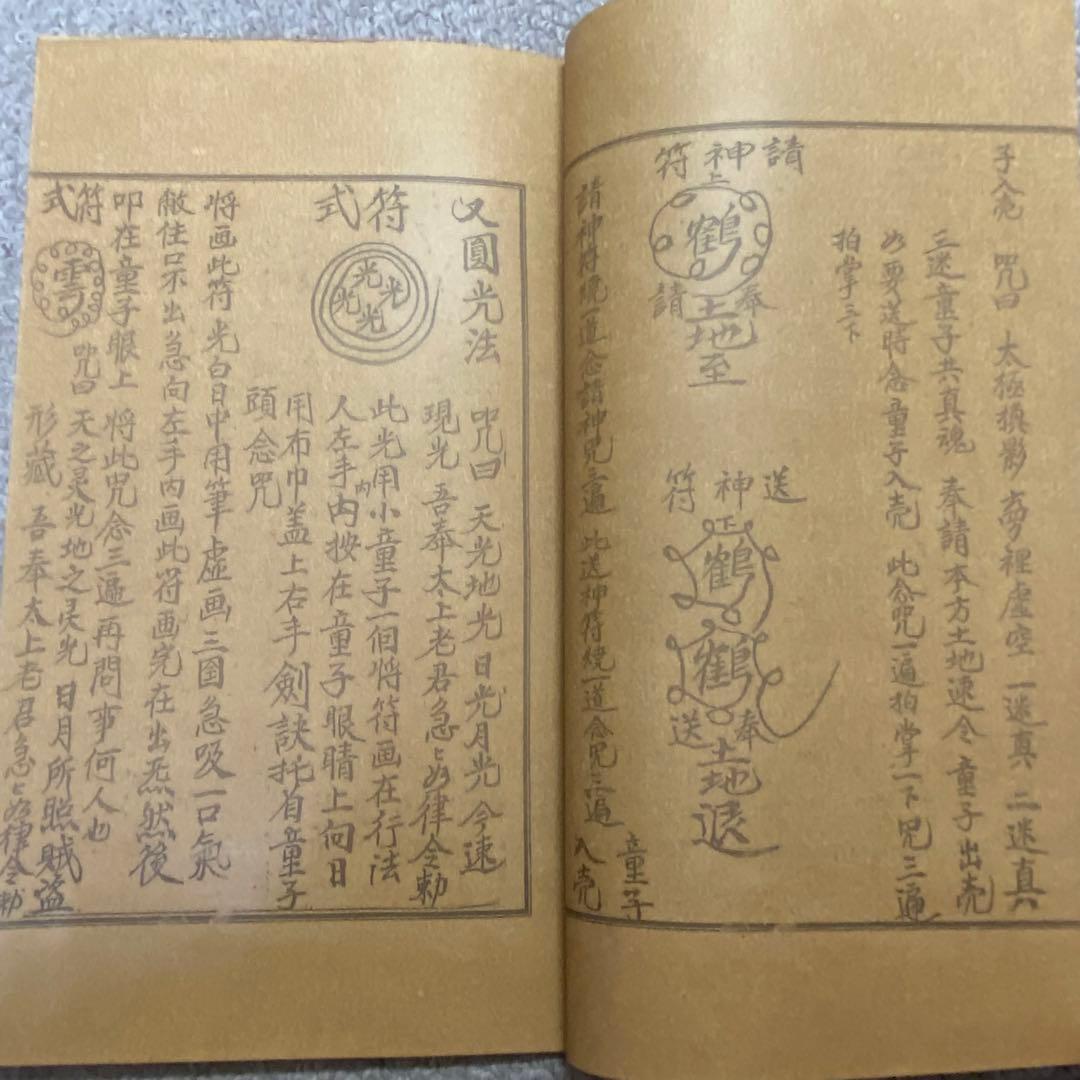 子入壳 咒曰 太極攝影 夢裡虛空 一迷真 二迷真
三迷童子共真魂 奉請本方土地速令童子出壳
如要送時念童子入壳 此念咒一遍拍掌一下咒三遍
拍掌三下
請神符
上
鶴
奉請
土地至
送神符
下
鶴
鶴
奉送
土地退
童子
請神符繞一道念請神咒三遍 此送神符繞一道念咒三遍 入壳
又圓光法 咒曰 天光地光日光月光今速
現光 吾奉太上老君急々如律令勅
符式
光光光光
此光用小童子一個將符画在行法
人左手内按在童子眼睛上向日
内
用布巾盖上右手劍訣托着童子
頭念咒
将画此符光白日中用筆虛画三国急吸一口氣
敝住口不出急向左手内画此符画完在出炁然後
叩在童子眼上 将此咒念三遍再問事何人也
符式
雲
咒曰 天之灵光地之灵光 日月所照賊盗
形藏 吾奉太上老君急々如律令勅